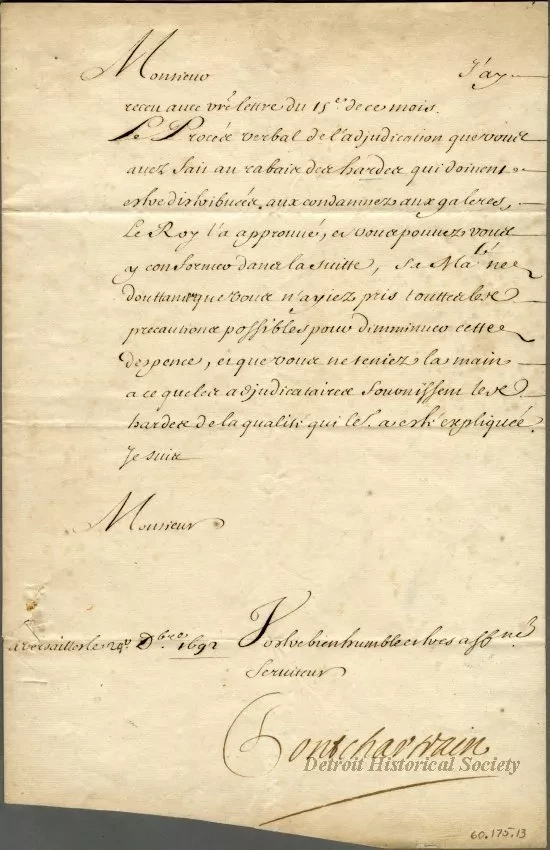 Monsieur J'ay
receu avec vre lettre du 15e. de ce mois.
Le Procés verbal de l'adjudication que vous
avez fait au rabais des hardes qui doivent
estre distribuées aux condamnez aux galeres,
Le Roy l'a approuvé, et vous pouvez vous
y conformer dans la suitte, Sa Maté. ne
douttant que vous n'ayiez pris touttes les
precautions possibles pour dimminuer cette
despence, et que vous ne teniez la main
a ce que les adjudicataires fournissent les
hardes de la qualité qui a esté expliquée.
Je suis
Monsieur
a Versailles le 24e. Dbre 1692 Vostre bien humble et tres affné
Serviteur
Pontchartrain
Detroit Historical Society
60.175.13